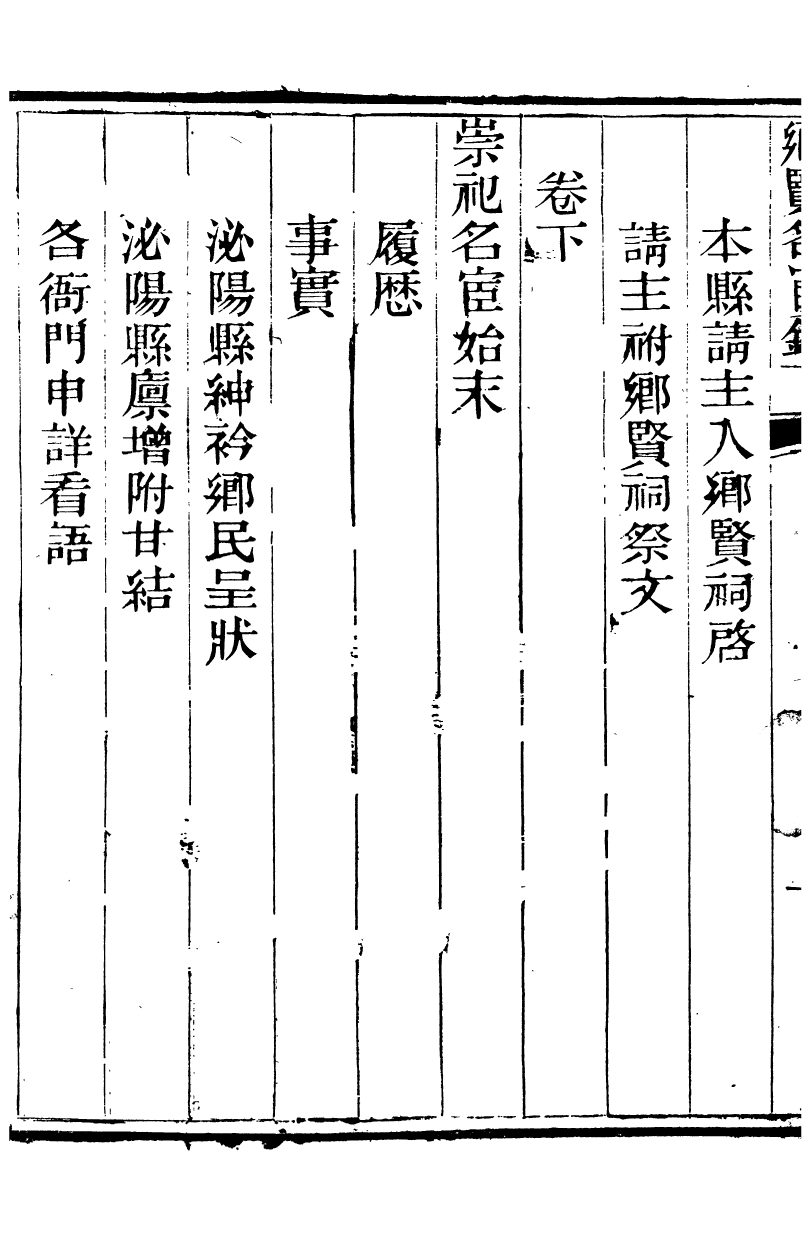 鄉賢名宦錄
本縣請主入鄉賢祠啓
請主祔鄉賢祠祭文
卷下
崇祀名宦始末
履歷
事實
泌陽縣紳衿鄉民呈狀
泌陽縣廩增附甘結
各衙門申詳看語